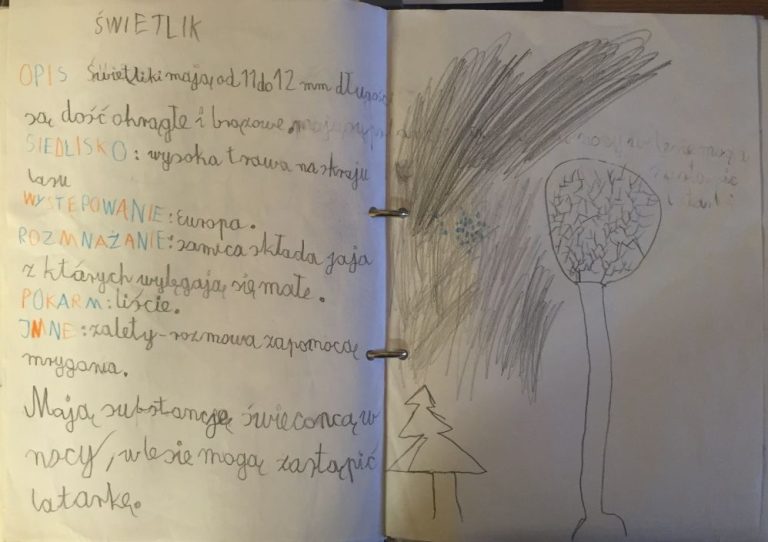 ŚWIETLIK
OPIS Świetliki mają od 11 do 12 mm długości
są dość okrągłe i brązowe.
SIEDLISKO: wysoka trawa na skraju
lasu
WYSTĘPOWANIE: Europa.
ROZMNAŻANIE: samica składa jaja
z których wylęgają się małe.
POKARM: liście.
INNE: zalety-rozmowa zapomocą
mrygania.
Mają substancję świeconcą w
nocy, w lesie mogą zastąpić
latarkę.